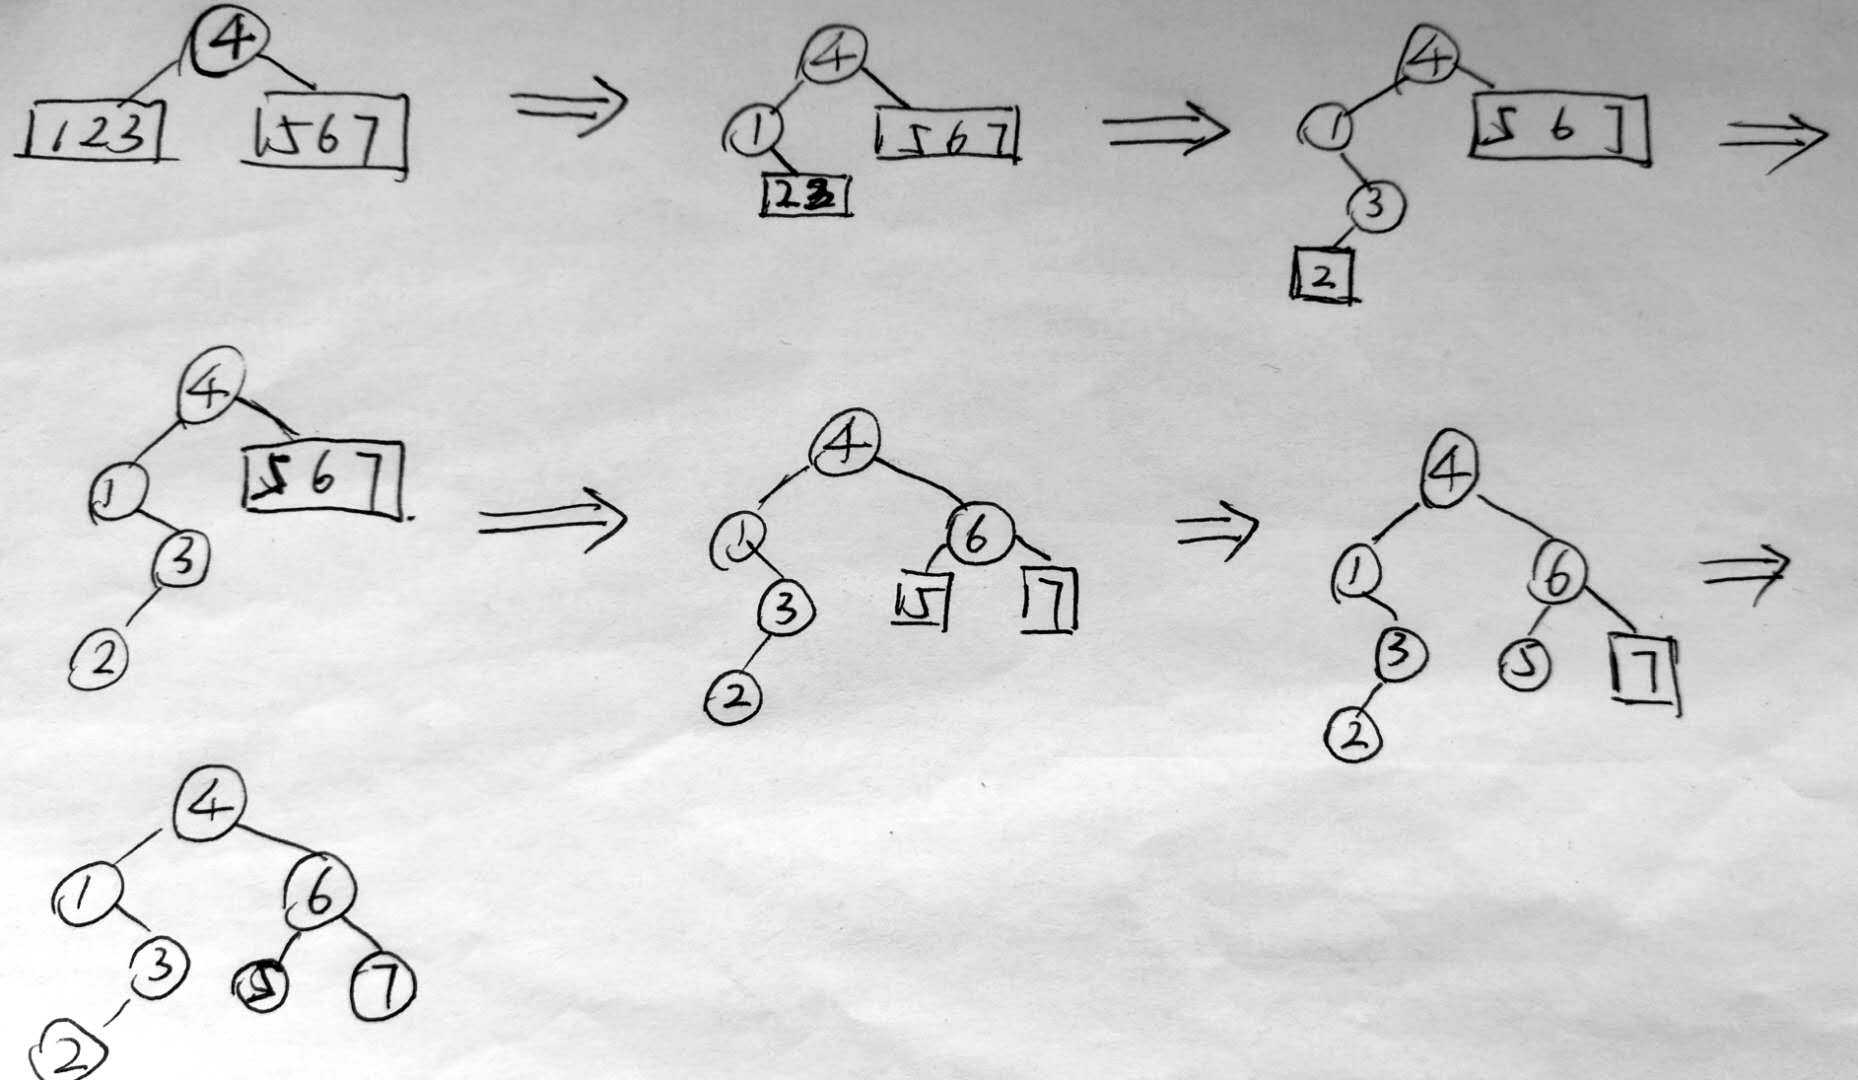 4
123 567
4
1 567
23
4
1 567
3
2
4
1 567
3
2
4
1 6
3 5 7
2
4
1 6
3 5 7
2
4
1 6
3 5 7
2